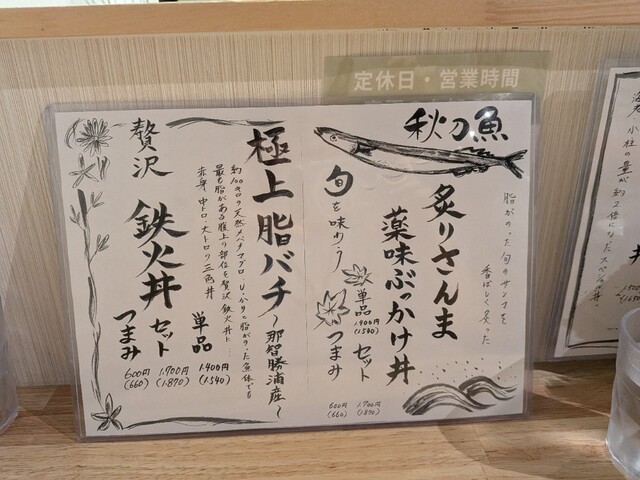 定休日・営業時間
秋刀魚
脂がのった旬のサンマを
香ばしく炙った
炙りさんま
薬味ぶっかけ丼
旬を味わう
単品
1,400円
(1,540)
セット
1,700円
(1,870)
つまみ
600円
(660)
極上脂バチ〜那智勝浦産〜
約100キロの天然バチマグロ、しっかりと脂がのった魚体でも
最も脂がある腹上の部位を贅沢鉄火丼に…
赤身、中トロ、大トロの三色丼
贅沢
鉄火丼
単品
1,400円
(1,540)
セット
1,700円
(1,870)
つまみ
600円
(660)
小柱の量が
約2倍になったスペシャル丼。